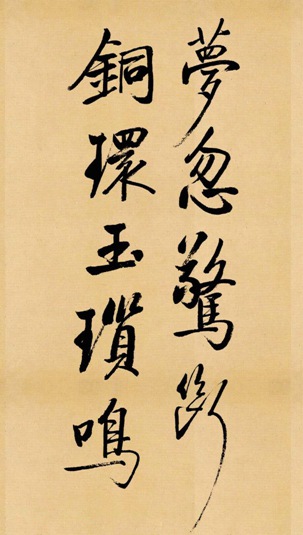 夢忽驚斷
銅環玉瑣鳴